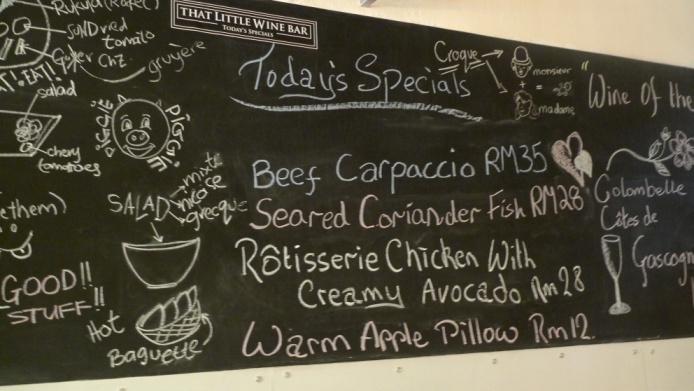 Rukula (Roket)
SUNDried
tomato
Goat Chz.
gruyère
EAT!
salad
chery
tomatoes
PIGGIE
PIGGIE
SALAD
mixte
niçoise
grecque
ethem)
GOOD!!
STUFF!!
Hot
Baguette
THAT LITTLE WINE BAR
TODAY'S SPECIALS
Today's Specials
Croque
monsieur
+ =
madame
Beef Carpaccio RM35
Seared Coriander Fish RM28
Rôtisserie Chicken With
Creamy Avocado Rm28
Warm Apple Pillow Rm12.
"Wine of the
Colombelle
Côtes de
Gascogn